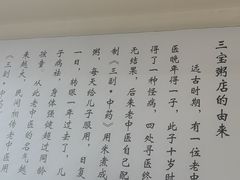 三宝粥店的由来
远古时期，有一位老中
医晚年得一子，此子十岁时
得了一种怪病，四处寻医终
无结果，后来老中医自己配
制《三副*中药》用米煮成
粥，每天给儿子服用，日复
一日，转眼一年过去了，儿
子病祛，身体强健超过同
孩童。从此老中医的名气越
来越大，民间相传老中医用
《三副*中药》